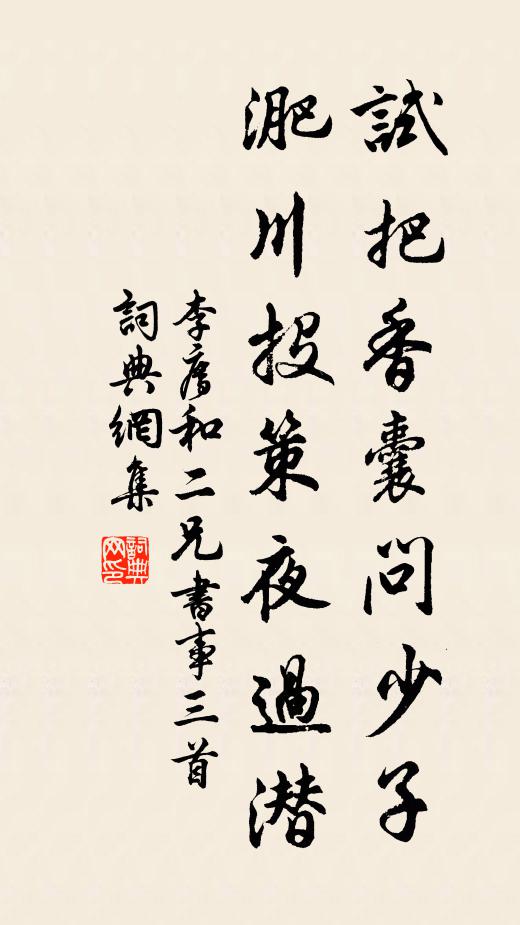 試把香囊問少子
淝川投策夜過潛
李廌和二兄書事三首
詞典網集
詞典
网印